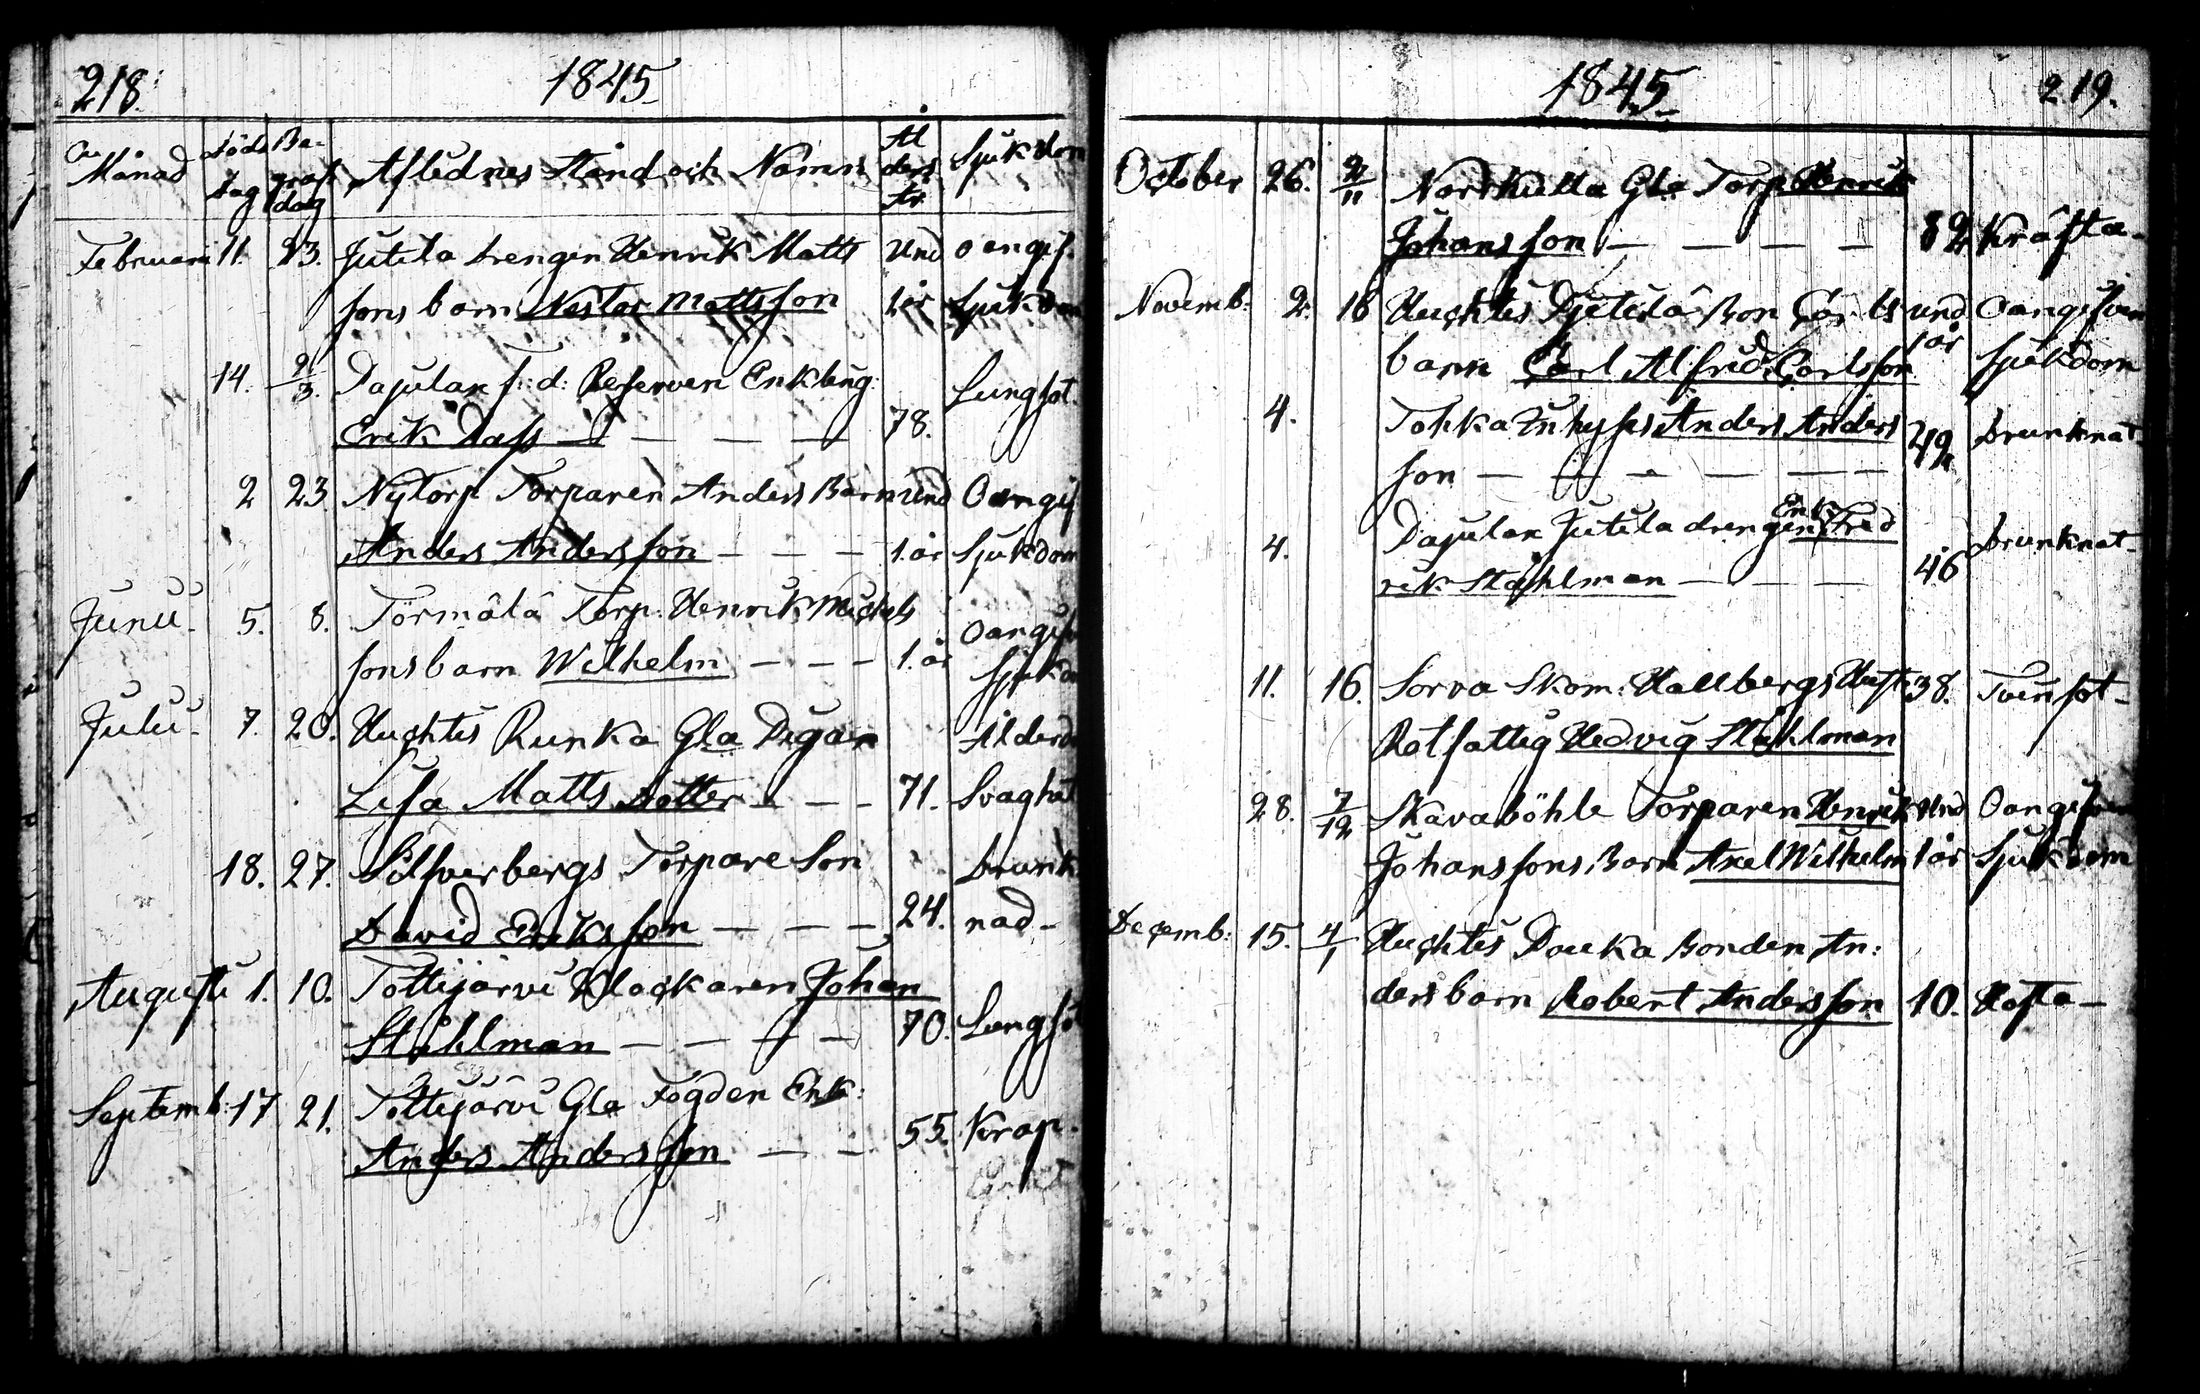 218.
1845
Månad
Döds dag
Begraf dag
Aflednes Stånd och Namn
Ålders År
Sjukdom
Februari 11. 23. Jutila drengen Henrik Matts und oangif.
sons barn Nestor Mattsson 1 år Sjukdom
14. 2/3. Dajulax f: d: Reserven Enkling Lungsot.
Erik Dass — — — — 78.
2 23 Nytorp Torparen Anders Barn und Oangif
Anders Andersson — — — 1. år Sjukdom
Junii. 5. 8. Törmälä Torp: Henrik Michels Oangif
sons barn Wilhelm — — — 1. år Sjukdo
Julii. 7. 20. Huchtis Runka Gla Pigan Ålderdo
Lisa Matts dotter — — — 71. Svaghet
18. 27. Silfverbergs Torpare Son Drunk
David Eriksson — — — 24. nad —
Augusti 1. 10. Tottijärvi Klockaren Johan
Ståhlman — — — — 70. Lungsot
Septemb: 17 21. Tottijärvi Gla Fogden Enk:
Anders Andersson — — 55. Krap.
1845
219.
October 26. 2/11 Norrkulla Gla Torp Henrik
Johansson — — — — 82 Kräfta —
Novemb: 2. 16 Huchtis Pjetilä Bon Carls und Oangifven
barn Carl Alfred Carlsson 1 år Sjukdom
4. Tohka Inhyses Anders Anders 42 Drunknat
son — — — — — —
4. Dajulax Jutila drengen Enk: Fred Drunknat —
rik Ståhlman — — — 46
11. 16. Sorva Skom: Hallbergs Hust: 38. Tvinsot —
Rotfattig Hedvig Ståhlman
28. 7/12 Skavaböhle Torparen Henrik und Oangifven
Johanssons Barn Axel Wilhelm 1 år Sjukdom
Decemb: 15. 4/1 Huchtis Pouka Bonden An:
ders barn Robert Andersson 10. Hosta —